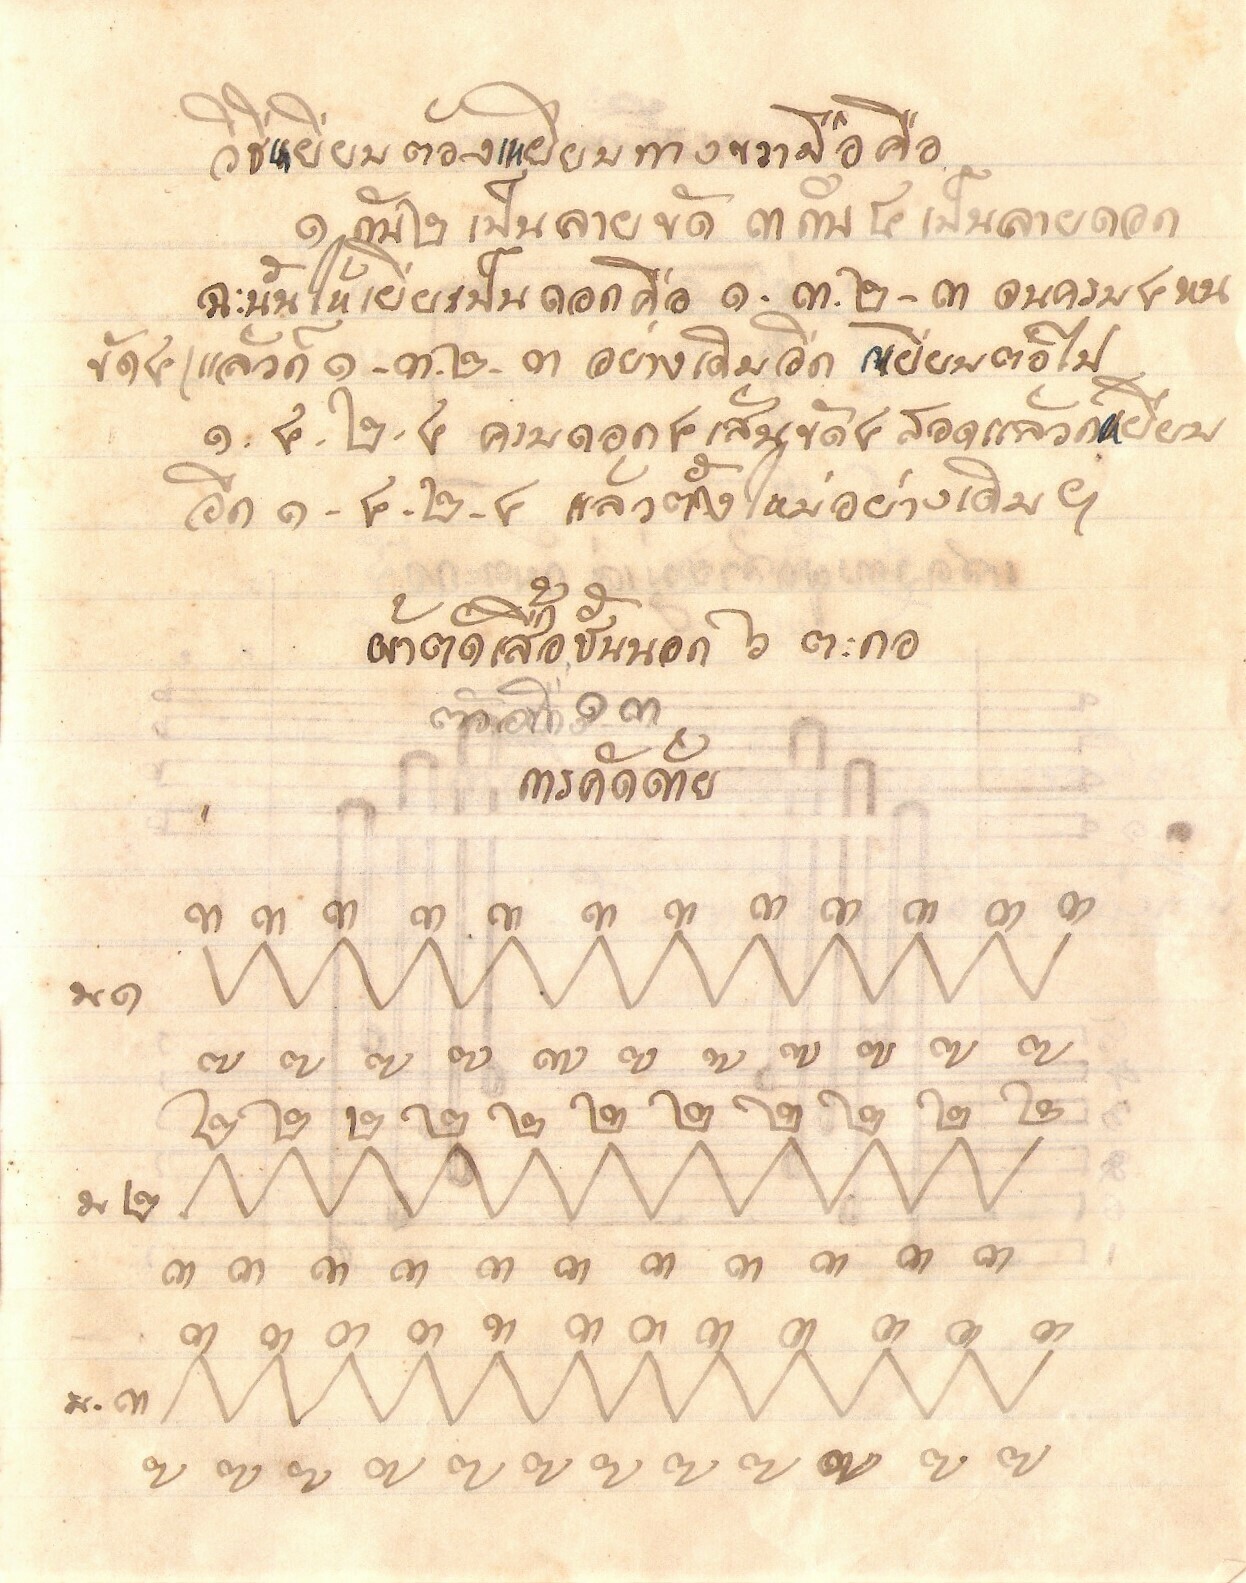 วิธีเหยียบต้องเหยียบทางขวามือ คือ
๑ กับ ๒ เป็นลายขัด ๓ กับ ๔ เป็นลายดอก
ฉะนั้นให้เหยียบเป็นดอกคือ ๑. ๓. ๒ - ๓ จนครบ ๔ หน
ขัด ๔ แล้วก็ ๑ - ๓. ๒ - ๓ อย่างเดิมอีก เหยียบต่อไป
๑. ๔. ๒. ๔ ครบดอก ๔ เส้น ขัด ๔ สอดแล้วก็เหยียบ
อีก ๑ - ๔. ๒ - ๔ แล้วตั้งใหม่อย่างเดิม ฯ
ผ้าตัดเสื้อชั้นนอก ๖ ตะกอ
ตัวอย่างที่ ๑๓
การคัดด้าย
๓ ๓ ๓ ๓ ๓ ๓ ๓ ๓ ๓ ๓ ๓ ๓
ม ๑
๗ ๗ ๗ ๗ ๗ ๗ ๗ ๗ ๗ ๗ ๗
๒ ๒ ๒ ๒ ๒ ๒ ๒ ๒ ๒ ๒ ๒
ม ๒
๓ ๓ ๓ ๓ ๓ ๓ ๓ ๓ ๓ ๓ ๓
๓ ๓ ๓ ๓ ๓ ๓ ๓ ๓ ๓ ๓ ๓ ๓
ม. ๓
๗ ๗ ๗ ๗ ๗ ๗ ๗ ๗ ๗ ๗ ๗ ๗